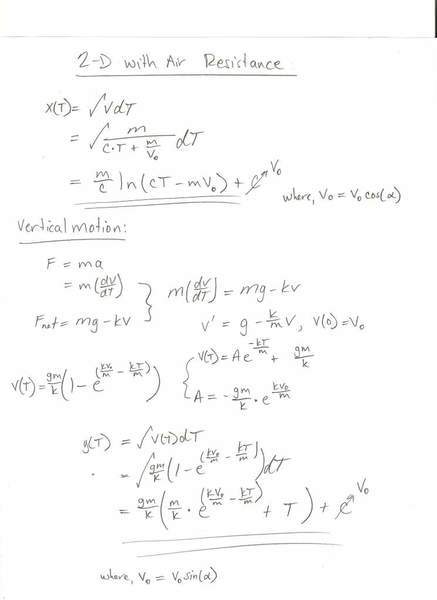 2-D with Air Resistance
X(T) = ∫VdT
= ∫ m/(C·T + m/V₀) dT
= m/c ln(cT - mV₀) + C V₀
where, V₀ = V₀ cos(α)
Vertical motion:
F = ma
= m(dV/dT) } m(dV/dT) = mg - kv
Fnet = mg - kV
v' = g - k/m V, V(0) = V₀
V(T) = gm/k (1 - e^(kV₀/m - kT/m)) { V(T) = A e^(-kT/m) + gm/k
A = -gm/k · e^(kV₀/m)
y(T) = ∫V(T)dT
= ∫ gm/k (1 - e^(kV₀/m - kT/m)) dT
= gm/k (m/k · e^(kV₀/m - kT/m) + T) + C V₀
where, V₀ = V₀ sin(α)